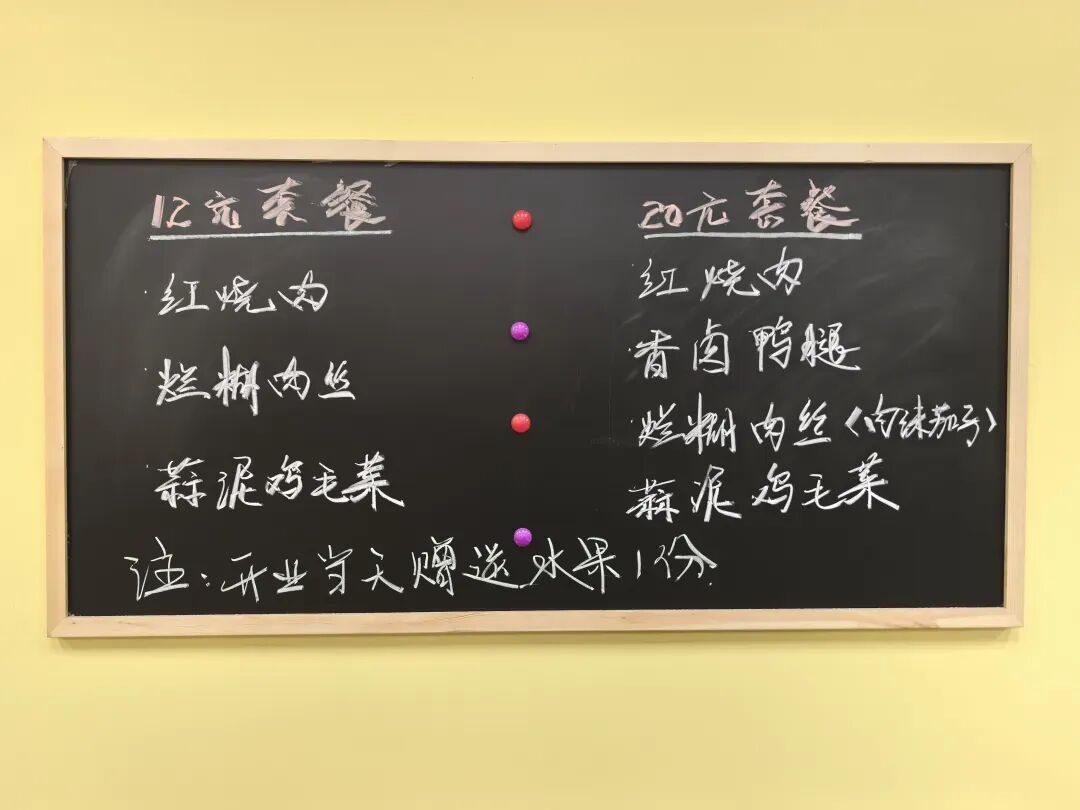 12元套餐
红烧肉
烂糊肉丝
蒜泥鸡毛菜
20元套餐
红烧肉
香卤鸭腿
烂糊肉丝(肉沫茄子)
蒜泥鸡毛菜
注:开业当天赠送水果1份.